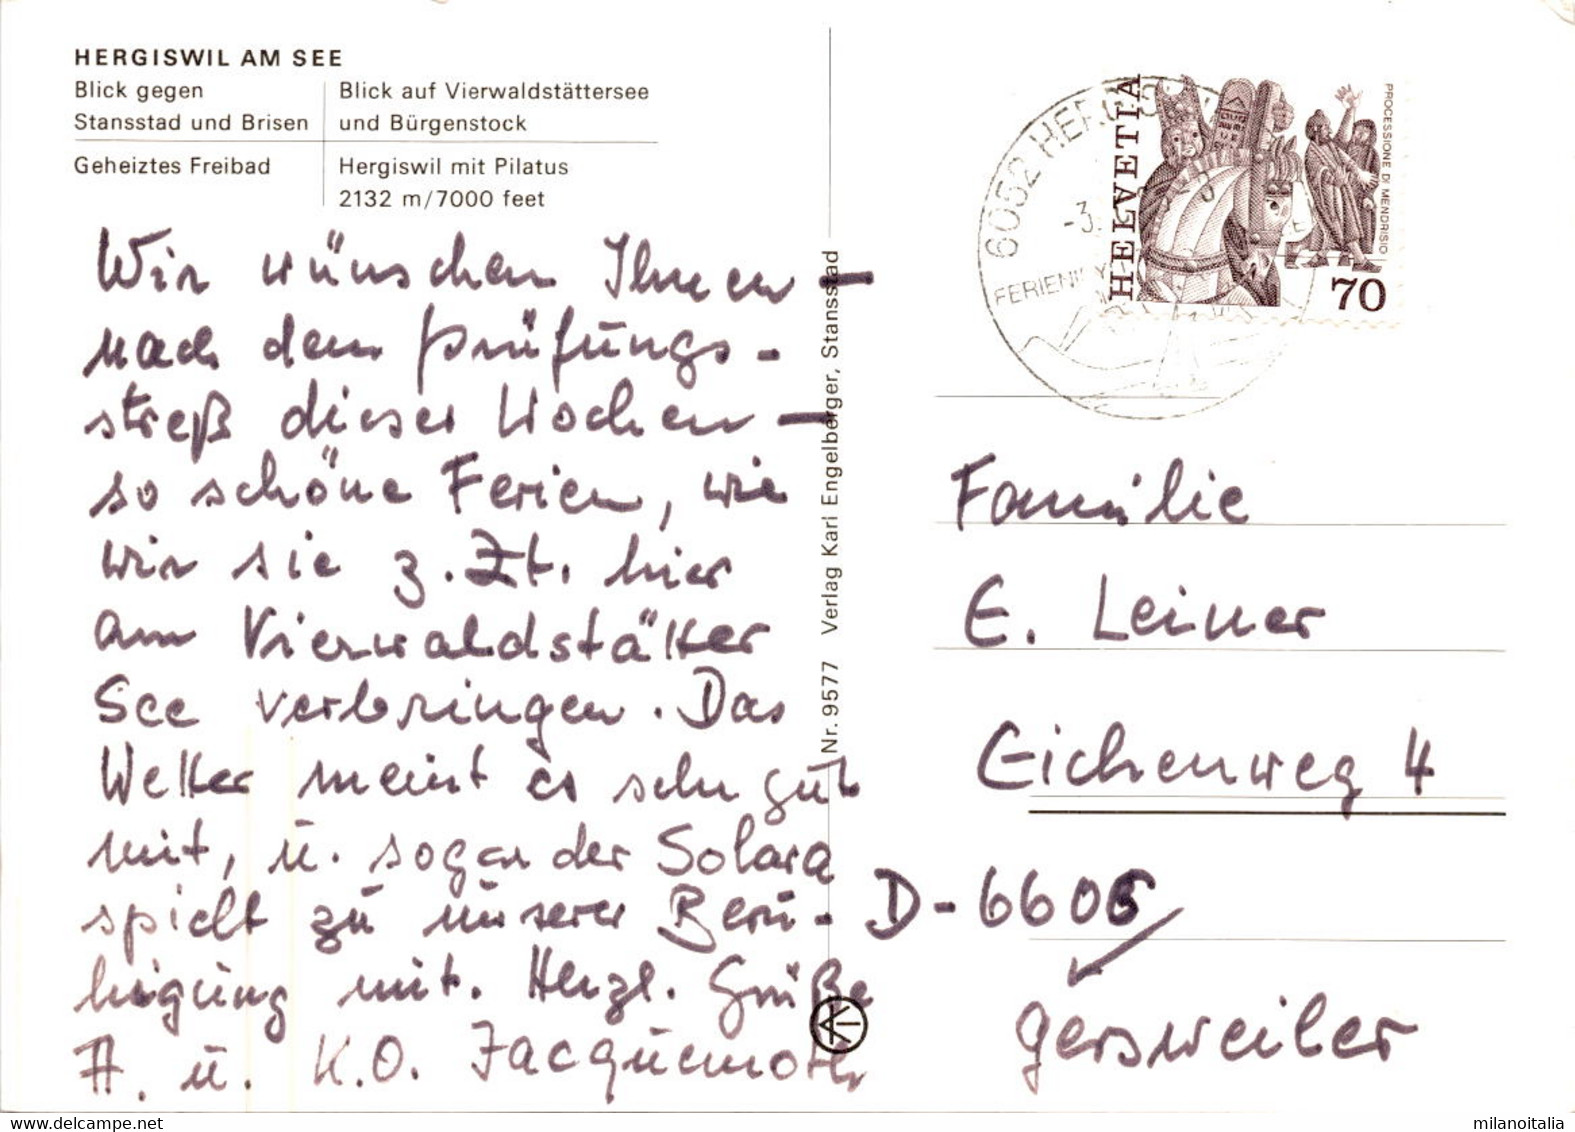 HERGISWIL AM SEE
Blick gegen
Stansstad und Brisen
Blick auf Vierwaldstättersee
und Bürgenstock
Geheiztes Freibad
Hergiswil mit Pilatus
2132 m/7000 feet
Wir wünschen Ihnen –
nach dem Prüfungs-
streß dieser Wochen –
so schöne Ferien, wie
wir sie z. Zt. hier
am Vierwaldstätter
See verbringen. Das
Wetter meint es sehr gut
mit, u. sogar der Solara
spielt zu unserer Beru-
higung mit. Herzl. Grüße
A. u. K.O. Jacquemoth
Nr. 9577 Verlag Karl Engelberger, Stansstad
6052 HERGISWIL
-3.
HELVETIA
PROCESSIONE DI MENDRISIO
70
Familie
E. Leiner
Eichenweg 4
D-6606
Gersweiler
milanoitalia